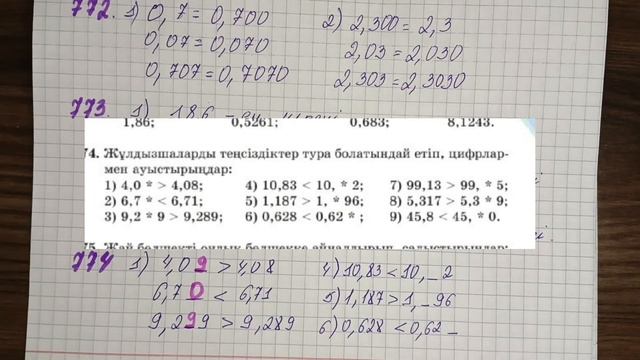 772. 1) 0,7 = 0,700 2) 2,300 = 2,3
0,07 = 0,070 2,03 = 2,030
0,707 = 0,7070 2,303 = 2,3030
773. 1)
1,86; 0,5261; 0,683; 8,1243.
74. Жұлдызшаларды теңсіздіктер тура болатындай етіп, цифрлар-
мен ауыстырыңдар:
1) 4,0 * > 4,08; 4) 10,83 < 10, * 2; 7) 99,13 > 99, * 5;
2) 6,7 * < 6,71; 5) 1,187 > 1, * 96; 8) 5,317 > 5,3 * 9;
3) 9,2 * 9 > 9,289; 6) 0,628 < 0,62 * ; 9) 45,8 < 45, * 0.
75. Жай бөлшекті ондық бөлшекке айналдырып, салыстырыңдар:
774 1) 4,09 > 4,08 4) 10,83 < 10,_2
6,70 < 6,71 5) 1,187 > 1,_96
9,299 > 9,289 6) 0,628 < 0,62_